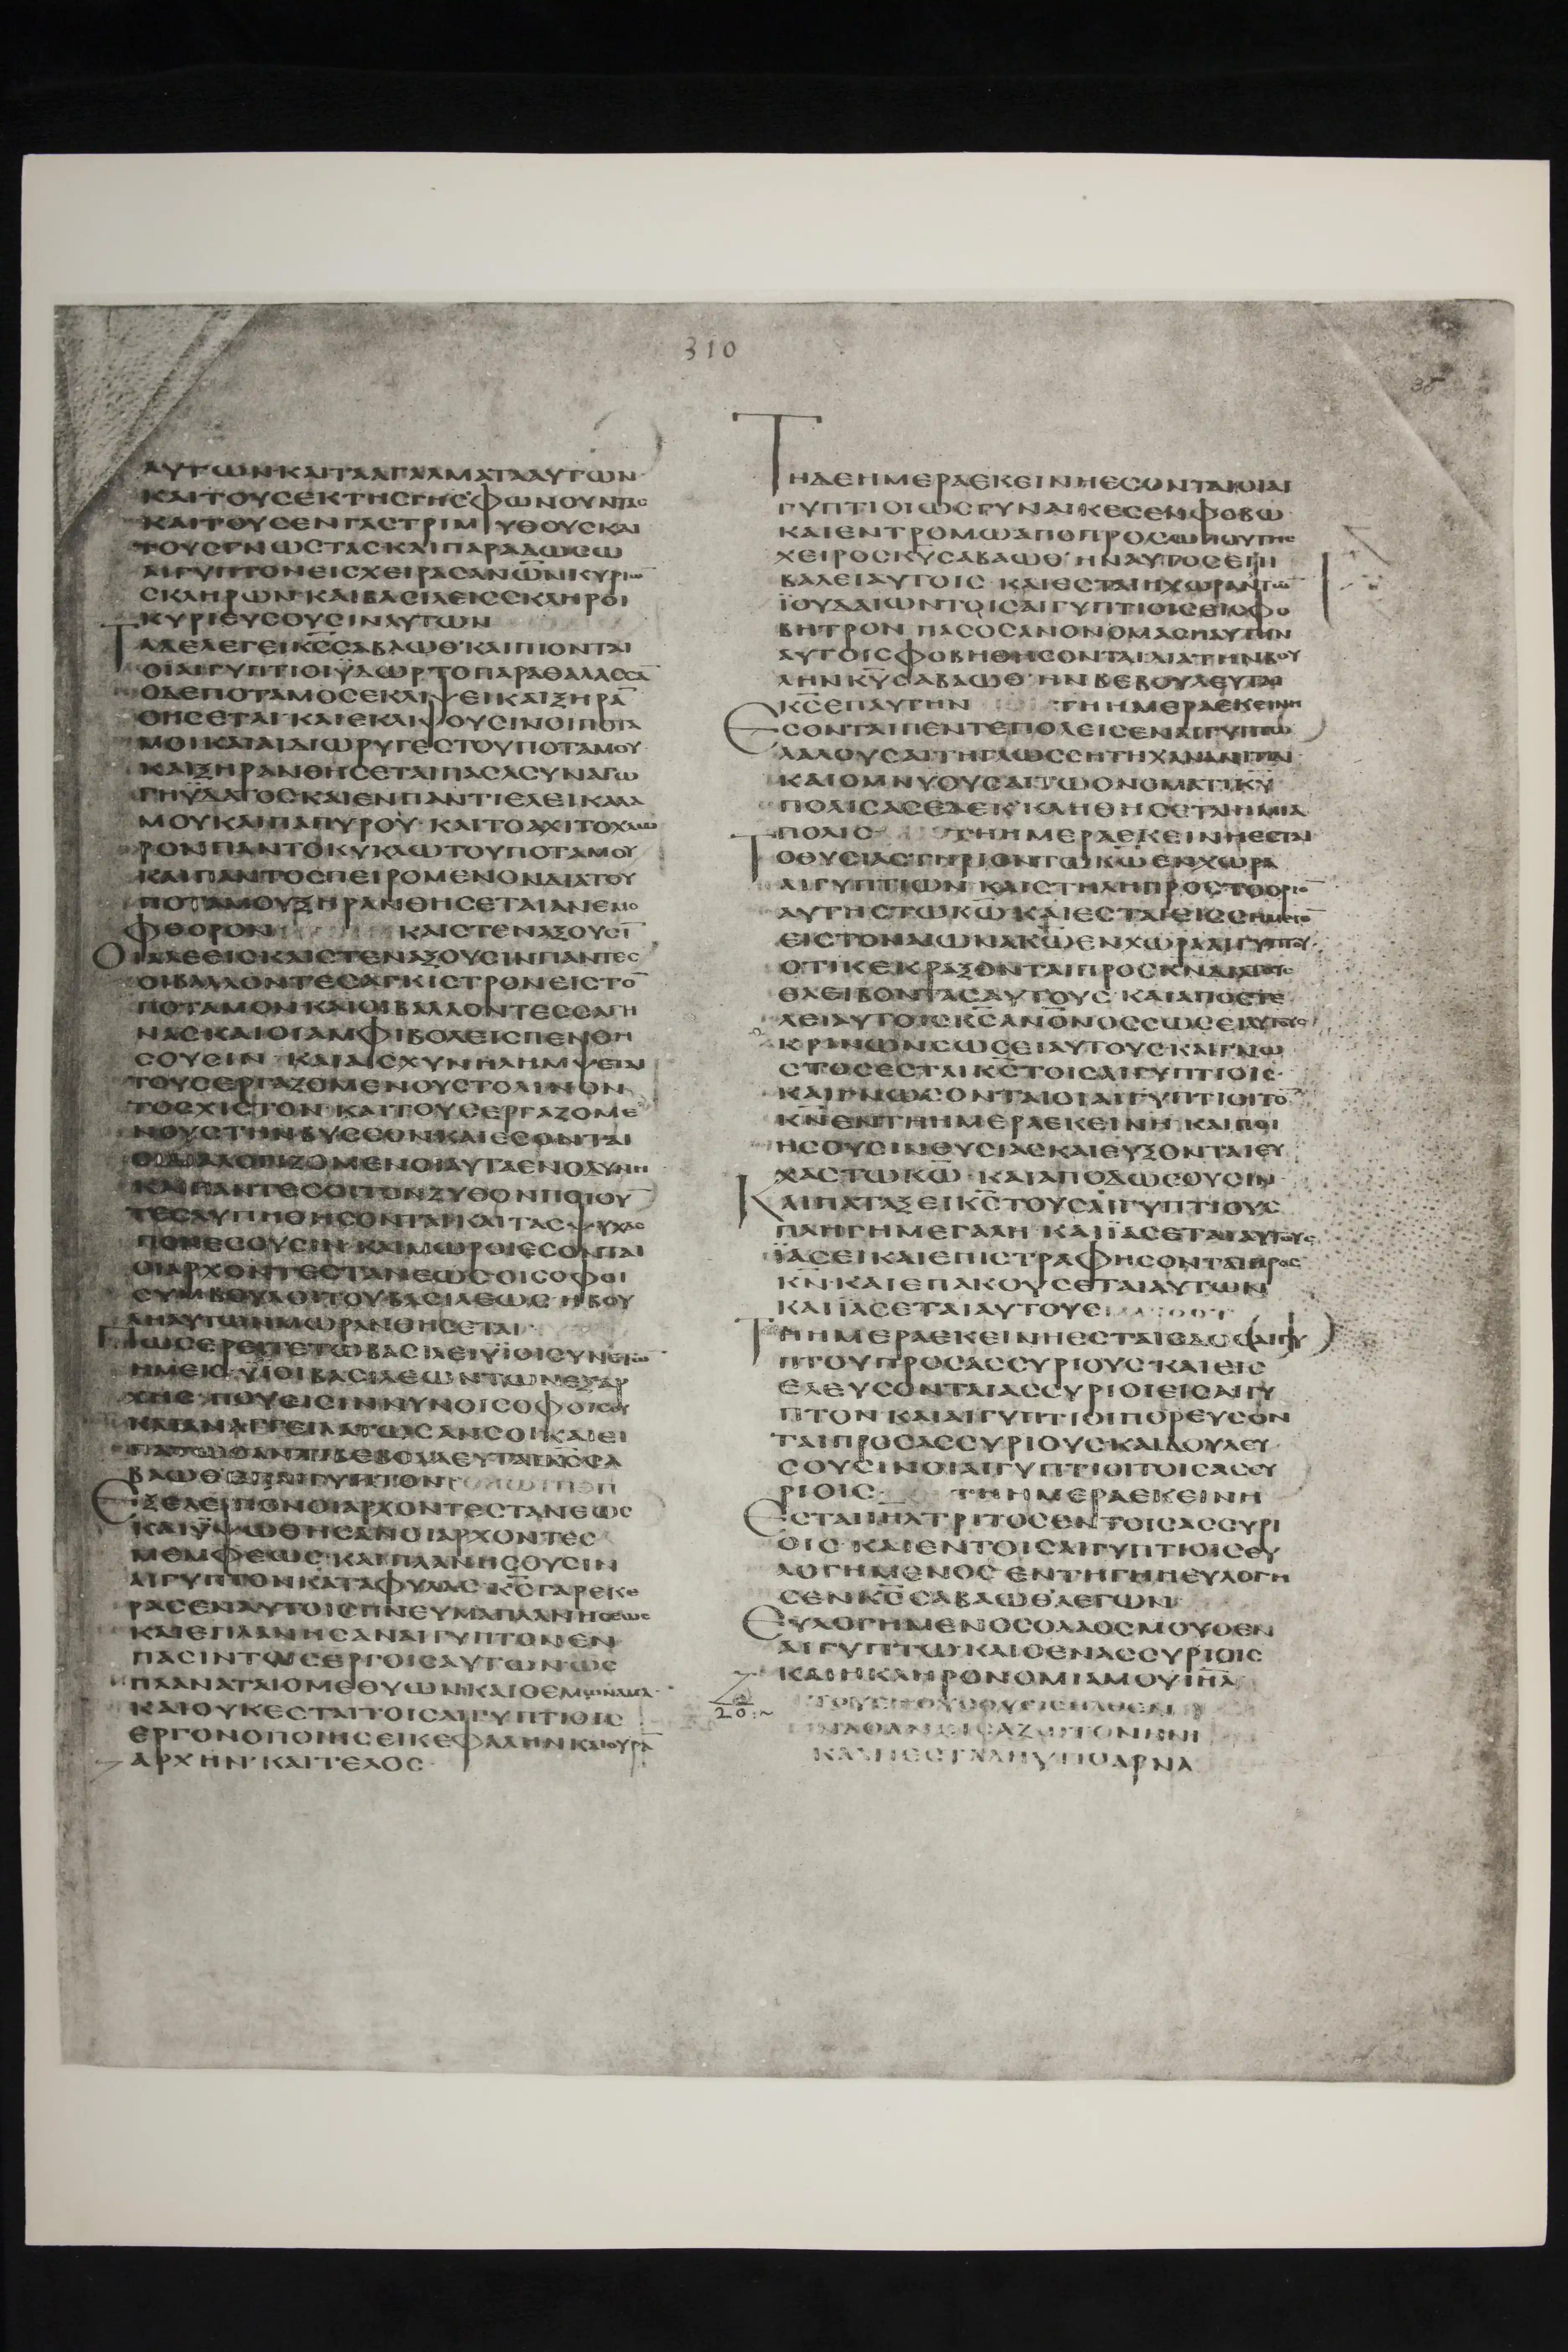 310
35
ΑΥΤΩΝ·ΚΑΙΤΑΑΓΑΛΜΑΤΑΑΥΤΩΝ·
ΚΑΙΤΟΥΣΕΚΤΗΣΓΗΣΦΩΝΟΥΝΤΑΣ
ΚΑΙΤΟΥΣΕΝΓΑΣΤΡΙΜΥΘΟΥΣΚΑΙ
ΤΟΥΣΓΝΩΣΤΑΣ·ΚΑΙΠΑΡΑΔΩΣΩ
ΑΙΓΥΠΤΟΝΕΙΣΧΕΙΡΑΣΑΝΩ̅Ν̅ΚΥΡΙΩ̅
ΣΚΛΗΡΩΝ·ΚΑΙΒΑΣΙΛΕΙΣΣΚΛΗΡΟΙ
ΚΥΡΙΕΥΣΟΥΣΙΝΑΥΤΩΝ
ΤΑΔΕΛΕΓΕΙΚ̅Σ̅ΣΑΒΑΩΘ·ΚΑΙΠΙΟΝΤΑΙ
ΟΙΑΙΓΥΠΤΙΟΙΫΔΩΡΤΟΠΑΡΑΘΑΛΑΣΣΑ̅
ΟΔΕΠΟΤΑΜΟΣΕΚΛΙΨΕΙΚΑΙΞΗΡΑ̅
ΘΗΣΕΤΑΙ·ΚΑΙΕΚΛΙΨΟΥΣΙΝΟΙΠΟΤΑ
ΜΟΙΚΑΙΑΙΔΙΩΡΥΓΕΣΤΟΥΠΟΤΑΜΟΥ·
ΚΑΙΞΗΡΑΝΘΗΣΕΤΑΙΠΑΣΑΣΥΝΑΓΩ
ΓΗΥΔΑΤΟΣΚΑΙΕΝΠΑΝΤΙΕΛΕΙΚΑΛΑ
ΜΟΥΚΑΙΠΑΠΥΡΟΥ·ΚΑΙΤΟΑΧΙΤΟΧΛΩ
ΡΟΝΠΑΝΤΟΚΥΚΛΩΤΟΥΠΟΤΑΜΟΥ
ΚΑΙΠΑΝΤΟΣΠΕΙΡΟΜΕΝΟΝΔΙΑΤΟΥ
ΠΟΤΑΜΟΥΞΗΡΑΝΘΗΣΕΤΑΙΑΝΕΜΟ
ΦΘΟΡΟΝ ΚΑΙΣΤΕΝΑΞΟΥΣΙ̅
ΟΙΑΛΕΕΙΣΚΑΙΣΤΕΝΑΞΟΥΣΙΝΠΑΝΤΕΣ
ΟΙΒΑΛΛΟΝΤΕΣΑΓΚΙΣΤΡΟΝΕΙΣΤΟ̅
ΠΟΤΑΜΟΝ·ΚΑΙΟΙΒΑΛΛΟΝΤΕΣΣΑΓΗ
ΝΑΣ·ΚΑΙΟΙΑΜΦΙΒΟΛΕΙΣΠΕΝΘΗ
ΣΟΥΣΙΝ·ΚΑΙΑΙΣΧΥΝΗΛΗΜΨΕΤΑΙ
ΤΟΥΣΕΡΓΑΖΟΜΕΝΟΥΣΤΟΛΙΝΟΝ
ΤΟΣΧΙΣΤΟΝ·ΚΑΙΤΟΥΣΕΡΓΑΖΟΜΕ
ΝΟΥΣΤΗΝΒΥΣΣΟΝΚΑΙΕΣΟΝΤΑΙ
ΟΙΔΙΑΛΟΓΙΖΟΜΕΝΟΙΑΥΤΑΕΝΟΔΥΝΗ
ΚΑΙΠΑΝΤΕΣΟΙΤΟΝΖΥΘΟΝΠΟΙΟΥ̅
ΤΕΣΛΥΠΗΘΗΣΟΝΤΑΙ·ΚΑΙΤΑΣΨΥΧΑΣ
ΠΟΝΕΣΟΥΣΙΝ·ΚΑΙΜΩΡΟΙΕΣΟΝΤΑΙ
ΟΙΑΡΧΟΝΤΕΣΤΑΝΕΩΣΟΙΣΟΦΟΙ
ΣΥΜΒΟΥΛΟΙΤΟΥΒΑΣΙΛΕΩΣ·ΗΒΟΥ
ΛΗΑΥΤΩΝΜΩΡΑΝΘΗΣΕΤΑΙ
ΠΩΣΕΡΕΙΤΕΤΩΒΑΣΙΛΕΙΥΪΟΙΣΥΝΕΤΩ̅
ΗΜΕΙΣ·ΥΪΟΙΒΑΣΙΛΕΩΝΤΩΝΕΞΑΡ
ΧΗΣ·ΠΟΥΕΙΣΙΝΝΥΝΟΙΣΟΦΟΙΣΟΥ
ΚΑΙΑΝΑΓΓΕΙΛΑΤΩΣΑΝΣΟΙ·ΚΑΙΕΙ
ΒΑΩΘΕΠΑΙΓΥΠΤΟΝ
ΕΞΕΛΕΙΠΟΝΟΙΑΡΧΟΝΤΕΣΤΑΝΕΩΣ
ΚΑΙΫΨΩΘΗΣΑΝΟΙΑΡΧΟΝΤΕΣ
ΜΕΜΦΕΩΣ·ΚΑΙΠΛΑΝΗΣΟΥΣΙΝ
ΑΙΓΥΠΤΟΝΚΑΤΑΦΥΛΑΣ·Κ̅Σ̅ΓΑΡΕΚΕ
ΡΑΣΕΝΑΥΤΟΙΣΠΝΕΥΜΑΠΛΑΝΗΣΕΩΣ
ΚΑΙΕΠΛΑΝΗΣΑΝΑΙΓΥΠΤΟΝΕΝ
ΠΑΣΙΝΤΟΙΣΕΡΓΟΙΣΑΥΤΩΝΩΣ
ΠΛΑΝΑΤΑΙΟΜΕΘΥΩΝ·ΚΑΙΟΕΜΩΝΑΜΑ·
ΚΑΙΟΥΚΕΣΤΑΙΤΟΙΣΑΙΓΥΠΤΙΟΙΣ
ΕΡΓΟΝΟΠΟΙΗΣΕΙΚΕΦΑΛΗΝΚΑΙΟΥΡΑ̅
ΑΡΧΗΝ·ΚΑΙΤΕΛΟΣ
ΤΗΔΕΗΜΕΡΑΕΚΕΙΝΗΕΣΟΝΤΑΙΟΙΑΙ
ΓΥΠΤΙΟΙΩΣΓΥΝΑΙΚΕΣΕΝΦΟΒΩ
ΚΑΙΕΝΤΡΟΜΩΑΠΟΠΡΟΣΩΠΟΥΤΗΣ
ΧΕΙΡΟΣΚ̅Υ̅ΣΑΒΑΩΘ·ΗΝΑΥΤΟΣΕΠΙ
ΒΑΛΕΙΑΥΤΟΙΣ·ΚΑΙΕΣΤΑΙΗΧΩΡΑΤΩ̅
ΪΟΥΔΑΙΩΝΤΟΙΣΑΙΓΥΠΤΙΟΙΣΕΙΣΦΟ
ΒΗΤΡΟΝ·ΠΑΣΟΣΑΝΟΝΟΜΑΣΗΑΥΤΗΝ
ΑΥΤΟΙΣΦΟΒΗΘΗΣΟΝΤΑΙΔΙΑΤΗΝΒΟΥ
ΛΗΝΚ̅Υ̅ΣΑΒΑΩΘ·ΗΝΒΕΒΟΥΛΕΥΤΑΙ
Κ̅Σ̅ΕΠΑΥΤΗΝ ΤΗΗΜΕΡΑΕΚΕΙΝΗ
ΕΣΟΝΤΑΙΠΕΝΤΕΠΟΛΕΙΣΕΝΑΙΓΥΠΤΩ
ΛΑΛΟΥΣΑΙΤΗΓΛΩΣΣΗΤΗΧΑΝΑΝΙΤΙΔΙ·
ΚΑΙΟΜΝΥΟΥΣΑΙΤΩΟΝΟΜΑΤΙΚ̅Υ̅
ΠΟΛΙΣΑΣΕΔΕΚ·ΚΛΗΘΗΣΕΤΑΙΗΜΙΑ
ΠΟΛΙΣ ΤΗΗΜΕΡΑΕΚΕΙΝΗΕΣΤΑΙ
ΤΟΘΥΣΙΑΣΤΗΡΙΟΝΤΩΚ̅Ω̅ΕΝΧΩΡΑ
ΑΙΓΥΠΤΙΩΝ·ΚΑΙΣΤΗΛΗΠΡΟΣΤΟΟΡΙΟ̅
ΑΥΤΗΣΤΩΚ̅Ω̅·ΚΑΙΕΣΤΑΙΕΙΣΣΗΜΕΙΟ̅
ΕΙΣΤΟΝΑΙΩΝΑΚ̅Ω̅ΕΝΧΩΡΑΑΙΓΥΠΤΟΥ·
ΟΤΙΚΕΚΡΑΞΟΝΤΑΙΠΡΟΣΚ̅Ν̅ΔΙΑΤΟΥΣ
ΘΛΕΙΒΟΝΤΑΣΑΥΤΟΥΣ·ΚΑΙΑΠΟΣΤΕ
ΛΕΙΑΥΤΟΙΣΚ̅Σ̅ΑΝ̅Ο̅Ν̅ΟΣΣΩΣΕΙΑΥΤΟΥΣ
ΚΡΙΝΩΝΣΩΣΕΙΑΥΤΟΥΣ·ΚΑΙΓΝΩ
ΣΤΟΣΕΣΤΑΙΚ̅Σ̅ΤΟΙΣΑΙΓΥΠΤΙΟΙΣ·
ΚΑΙΓΝΩΣΟΝΤΑΙΟΙΑΙΓΥΠΤΙΟΙΤΟ̅
Κ̅Ν̅ΕΝΤΗΗΜΕΡΑΕΚΕΙΝΗ·ΚΑΙΠΟΙ
ΗΣΟΥΣΙΝΘΥΣΙΑΣΚΑΙΕΥΞΟΝΤΑΙΕΥ
ΧΑΣΤΩΚ̅Ω̅·ΚΑΙΑΠΟΔΩΣΟΥΣΙΝ·
ΚΑΙΠΑΤΑΞΕΙΚ̅Σ̅ΤΟΥΣΑΙΓΥΠΤΙΟΥΣ
ΠΛΗΓΗΜΕΓΑΛΗ·ΚΑΙΪΑΣΕΤΑΙΑΥΤΟΥΣ
ΪΑΣΕΙΚΑΙΕΠΙΣΤΡΑΦΗΣΟΝΤΑΙΠΡΟΣ
Κ̅Ν̅·ΚΑΙΕΠΑΚΟΥΣΕΤΑΙΑΥΤΩΝ
ΚΑΙΪΑΣΕΤΑΙΑΥΤΟΥΣ
ΤΗΗΜΕΡΑΕΚΕΙΝΗΕΣΤΑΙΟΔΟΣΑΙΓΥ
ΠΤΟΥΠΡΟΣΑΣΣΥΡΙΟΥΣ·ΚΑΙΕΙΣ
ΕΛΕΥΣΟΝΤΑΙΑΣΣΥΡΙΟΙΕΙΣΑΙΓΥ
ΠΤΟΝ·ΚΑΙΑΙΓΥΠΤΙΟΙΠΟΡΕΥΣΟΝ
ΤΑΙΠΡΟΣΑΣΣΥΡΙΟΥΣ·ΚΑΙΔΟΥΛΕΥ
ΣΟΥΣΙΝΟΙΑΙΓΥΠΤΙΟΙΤΟΙΣΑΣΣΥ
ΡΙΟΙΣ· ΤΗΗΜΕΡΑΕΚΕΙΝΗ
ΕΣΤΑΙΙΗΛΤΡΙΤΟΣΕΝΤΟΙΣΑΣΣΥΡΙ
ΟΙΣ·ΚΑΙΕΝΤΟΙΣΑΙΓΥΠΤΙΟΙΣΕΥ
ΛΟΓΗΜΕΝΟΣΕΝΤΗΓΗΗΕΥΛΟΓΗ
ΣΕΝΚ̅Σ̅ΣΑΒΑΩΘΛΕΓΩΝ·
ΕΥΛΟΓΗΜΕΝΟΣΟΛΑΟΣΜΟΥΟΕΝ
ΑΙΓΥΠΤΩ·ΚΑΙΟΕΝΑΣΣΥΡΙΟΙΣ
ΚΑΙΗΚΛΗΡΟΝΟΜΙΑΜΟΥΙ̅Η̅Λ̅
20